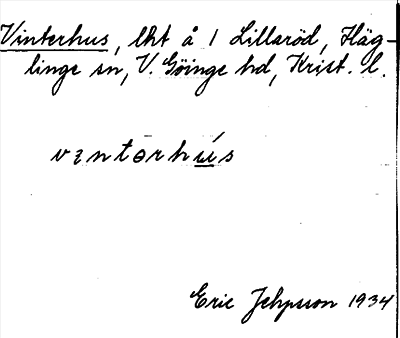 Vinterhus, lht å 1 Lillaröd, Häg-
linge sn, V. Göinge hd, Krist. l.
vɪntərhú̲s
Eric Jehpsson 1934